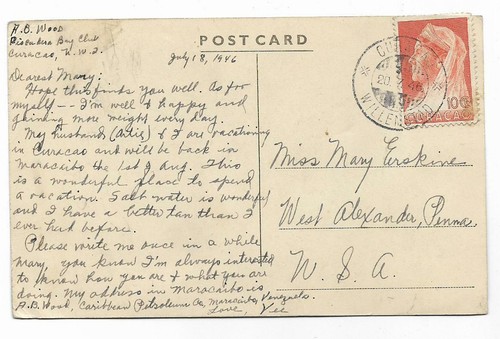 A.B. Wood
Piscadera Bay Club
Curacao, N.W.I.
July 18, 1946
POST CARD
Dearest Mary:
Hope this finds you well. As for
myself -- I'm well & happy and
gaining more weight every day.
My husband (Artis) & I are vacationing
in Curacao and will be back in
Maracaibo the 1st of Aug. This
is a wonderful place to spend
a vacation. Salt water is wonderful
and I have a better tan than I
ever had before.
Please write me once in a while
Mary, you know I'm always interested
to know how you are & what you are
doing. My address in Maracaibo is
A.B. Wood, Caribbean Petroleum Co, Maracaibo, Venezuela.
Love, Vee
WILLEMSTAD
100
CURACAO
Miss Mary Erskine
West Alexander, Penna.
U.S.A.